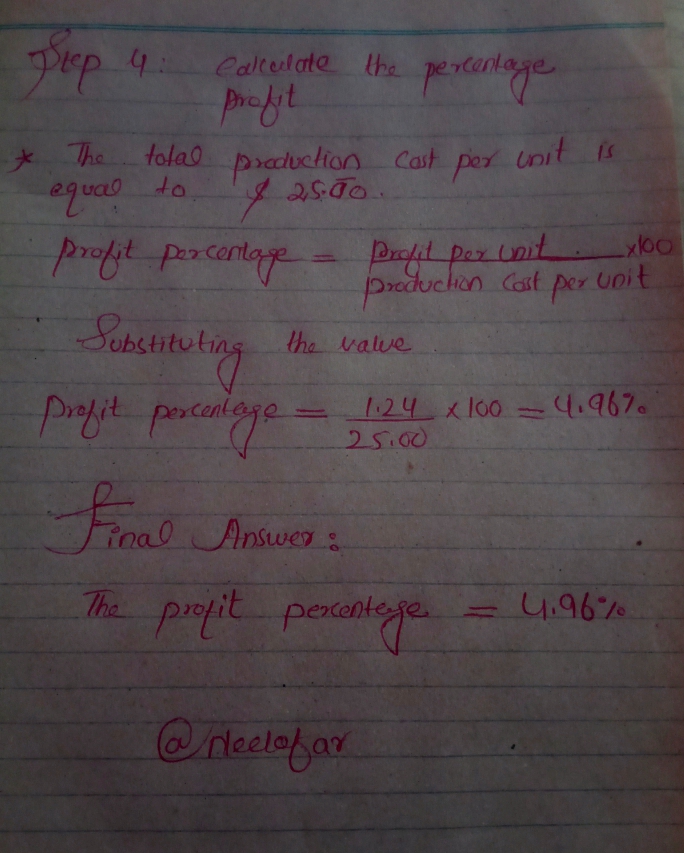 Step 4: Calculate the percentage
profit
* The total production cost per unit is
equal to $ 25.00.
profit percentage = profit per unit x100
production cost per unit
Substituting the value
profit percentage = 1.24 x 100 = 4.96%
25.00
Final Answer:
The profit percentege = 4.96%
@Neelofar